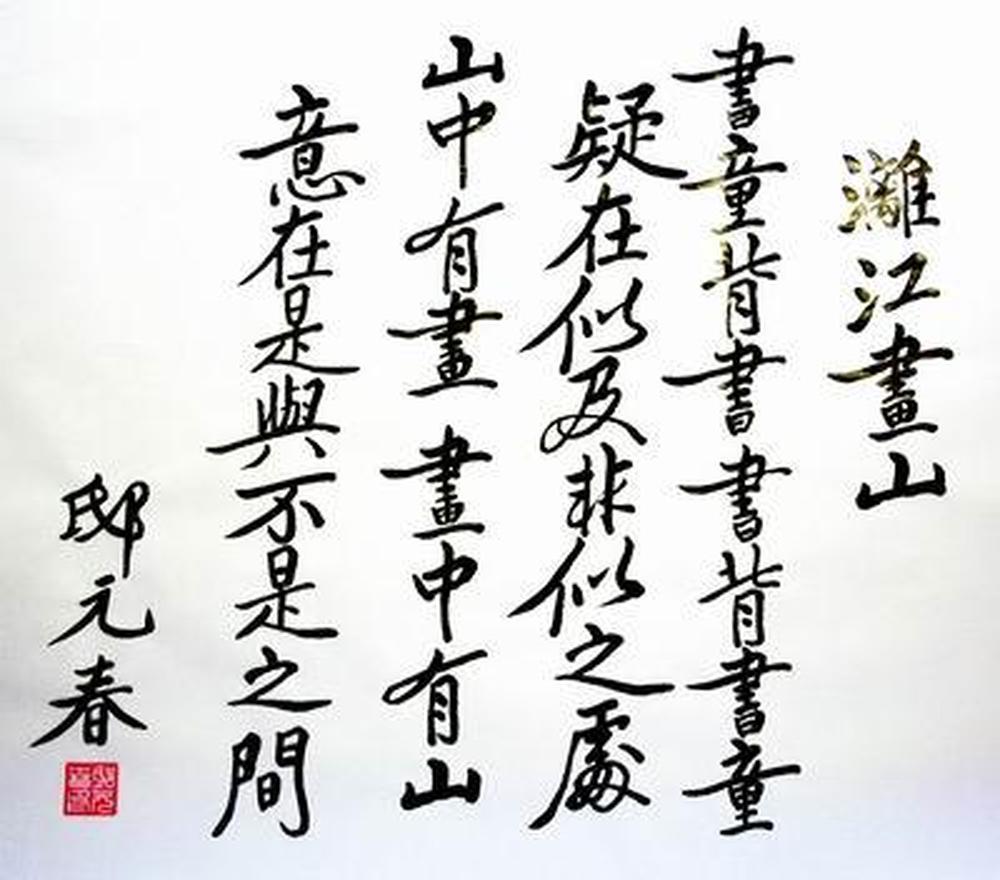 灕江畫山
書童背書書背書童
疑在似及非似之處
山中有畫畫中有山
意在是與不是之間
邸元春